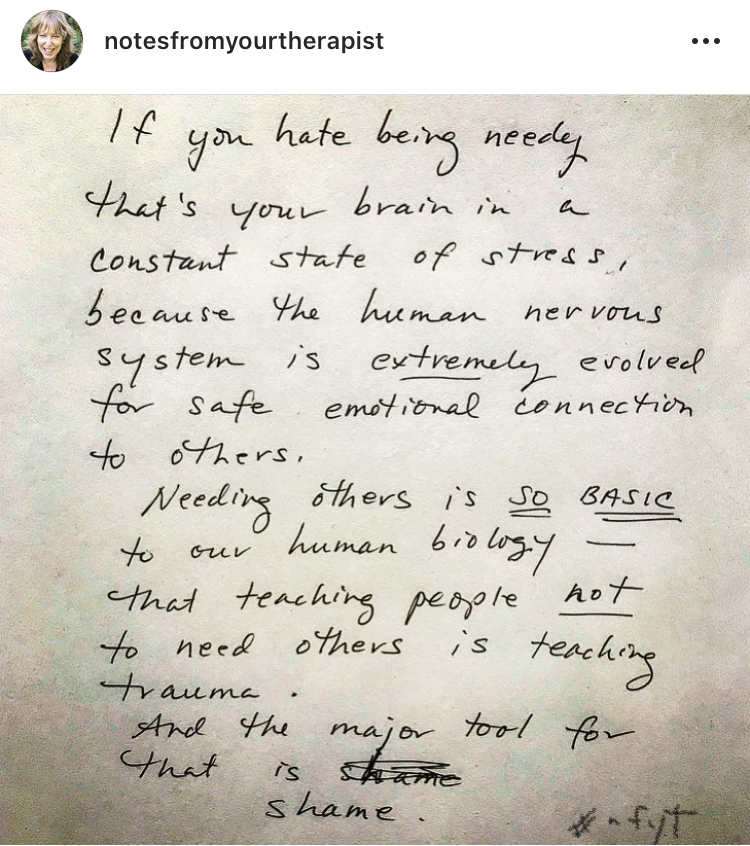 notesfromyourtherapist
If you hate being needy
that's your brain in a
constant state of stress,
because the human nervous
system is extremely evolved
for safe emotional connection
to others.
Needing others is SO BASIC
to our human biology —
that teaching people not
to need others is teaching
trauma.
And the major tool for
that is shame
shame.
#nfyt